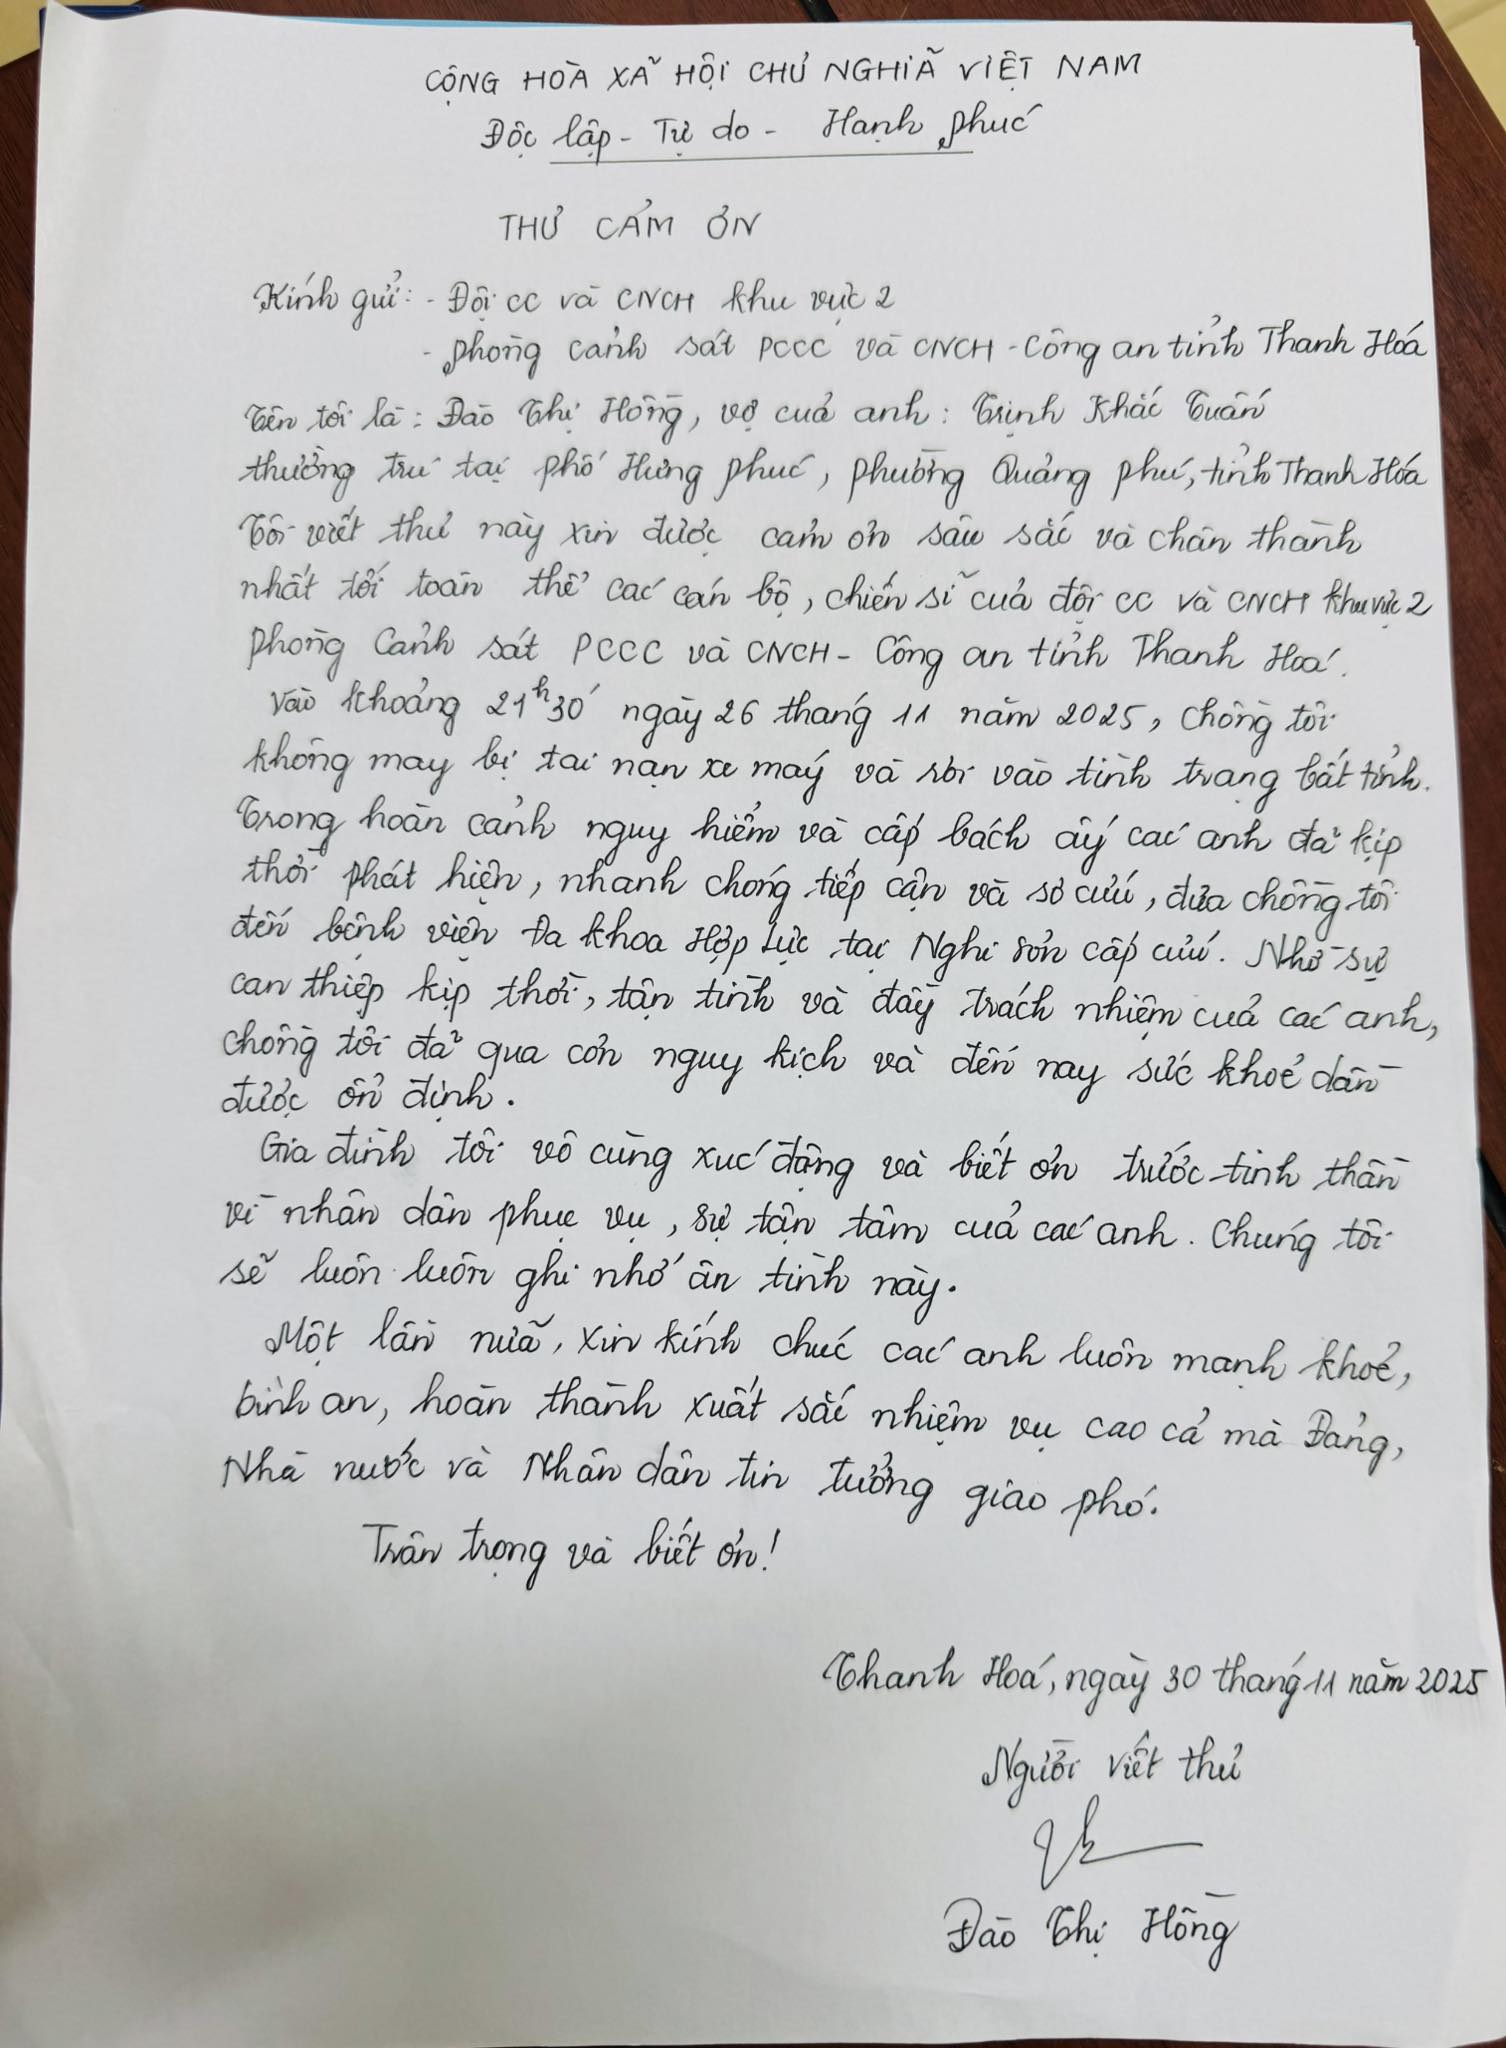 CỘNG HÒA XÃ HỘI CHỦ NGHĨA VIỆT NAM
Độc lập - Tự do - Hạnh phúc
THƯ CẢM ƠN
Kính gửi: - Đội CC và CNCH khu vực 2
- phòng cảnh sát PCCC và CNCH - Công an tỉnh Thanh Hóa
Tên tôi là: Đào Thị Hồng, vợ của anh: Trịnh Khắc Tuấn
thường trú tại phố Hưng phúc, phường Quảng phú, tỉnh Thanh Hóa
Tôi viết thư này xin được cảm ơn sâu sắc và chân thành
nhất tới toàn thể các cán bộ, chiến sĩ của đội CC và CNCH khu vực 2
phòng Cảnh sát PCCC và CNCH - Công an tỉnh Thanh Hoá.
Vào khoảng 21h30' ngày 26 tháng 11 năm 2025, chồng tôi
không may bị tai nạn xe máy và rơi vào tình trạng bất tỉnh.
Trong hoàn cảnh nguy hiểm và cấp bách ấy các anh đã kịp
thời phát hiện, nhanh chóng tiếp cận và sơ cứu, đưa chồng tôi
đến bệnh viện Đa khoa Hợp Lực tại Nghi Sơn cấp cứu. Nhờ sự
can thiệp kịp thời, tận tình và đầy trách nhiệm của các anh,
chồng tôi đã qua cơn nguy kịch và đến nay sức khoẻ dần
được ổn định.
Gia đình tôi vô cùng xúc động và biết ơn trước tinh thần
vì nhân dân phục vụ, sự tận tâm của các anh. Chúng tôi
sẽ luôn luôn ghi nhớ ân tình này.
Một lần nữa, xin kính chúc các anh luôn mạnh khoẻ,
bình an, hoàn thành xuất sắc nhiệm vụ cao cả mà Đảng,
Nhà nước và Nhân dân tin tưởng giao phó.
Trân trọng và biết ơn!
Thanh Hoá, ngày 30 tháng 11 năm 2025
Người viết thư
Đào Thị Hồng